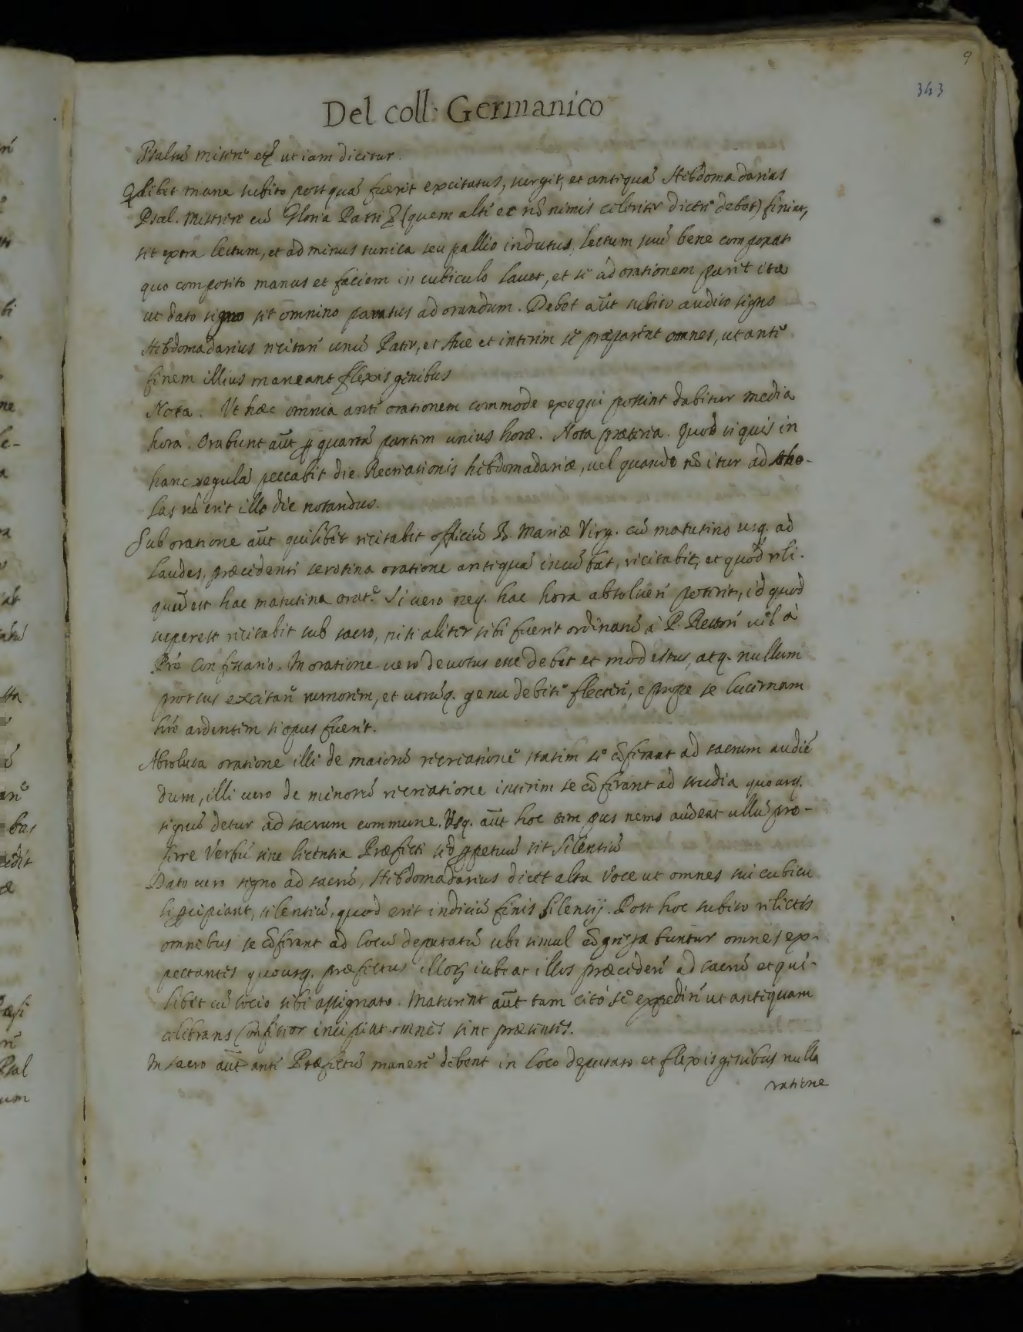 9
343
Del coll: Germanico
Psalmũ miserẽ etc̃ ut iam dicetur.
Qĩlibet mane subito postquã fuerit excitatus, surgit, et antiquã Hebdomadarius
Psal. Miserere cũ Gloria Patri (quem altẽ et nõ nimis celeriter dicerẽ debet) finiat,
sit extra lectum, et ad minus tunica seu pallio indutus, lectum suũ bene componat
quo composito manus et faciem in cubiculo lavet, et sẽ ad orationem paret ita
ut dato signo sit omnino paratus ad orandum. Debet aũt subito audito signo
Hebdomadarius recitarẽ unũ Pater, et Ave et interim sẽ præparent omnes, ut antẽ
finem illius maneant flexis genibus
Nota. Ut hæc omnia antẽ orationem commode exequi possint dabitur media
hora. Orabunt aũt p quartã partem unius horæ. Nota præterea. Quod si quis in
hanc regulã peccabit die Recreationis hebdomadariæ, vel quando nõ itur ad scho-
las nõ erit illo die notandus.
Sub oratione aũt quilibet recitabit officiũ B. Mariæ Virg. cũ matutino usq. ad
laudes, præcedenti serotina oratione antiquã incũbat, recitabit, et quod reli-
quũ est hac matutina orat.e Si vero neq. hac hora absolverẽ poterit, id quod
superest recitabit sub sacro, nisi aliter sibi fuerit ordinatũ à P. Rectorẽ vel à
Prẽ Confessario. In oratione vero devotus esse debet et modestus, atq. nullum
prorsus excitarẽ rumorem, et utrũq. genu debitẽ flecterẽ, e prope se lucernam
ardentem si opus fuerit.
Absoluta oratione illi de maiorẽ recreationẽ statim sẽ cõferant ad sacrum audiẽ
dum, illi vero de minorẽ recreatione interim se cõferant ad studia quousq.
signũ detur ad sacrum commune. Usq. aũt hoc tempus nemo audeat ullũ pro-
ferre Verbũ sine licentia Præfecti sed ppetuũ sit silentiũ
Dato vero signo ad sacrũ, Hebdomadarius dicet alta voce ut omnes sui cubicu
li pcipiant, silentiũ, quod erit indiciũ finis silentij. Post hoc subito relictis
omnibus se cõferant ad locũ deputatũ ubi simul cõgregabuntur omnes ex-
pectantes quousq. præfectus illorũ iubeat illos præcederẽ ad sacrũ et qui-
libet cũ socio sibi assignato. Maturent aũt tam citò sẽ expedirẽ ut antiquam
celebrans Confiteor incipiat omnes sint præsentes.
In sacro aũt antẽ Præfectũ manerẽ debent in loco deputato et flexis genibus nulla
ratione